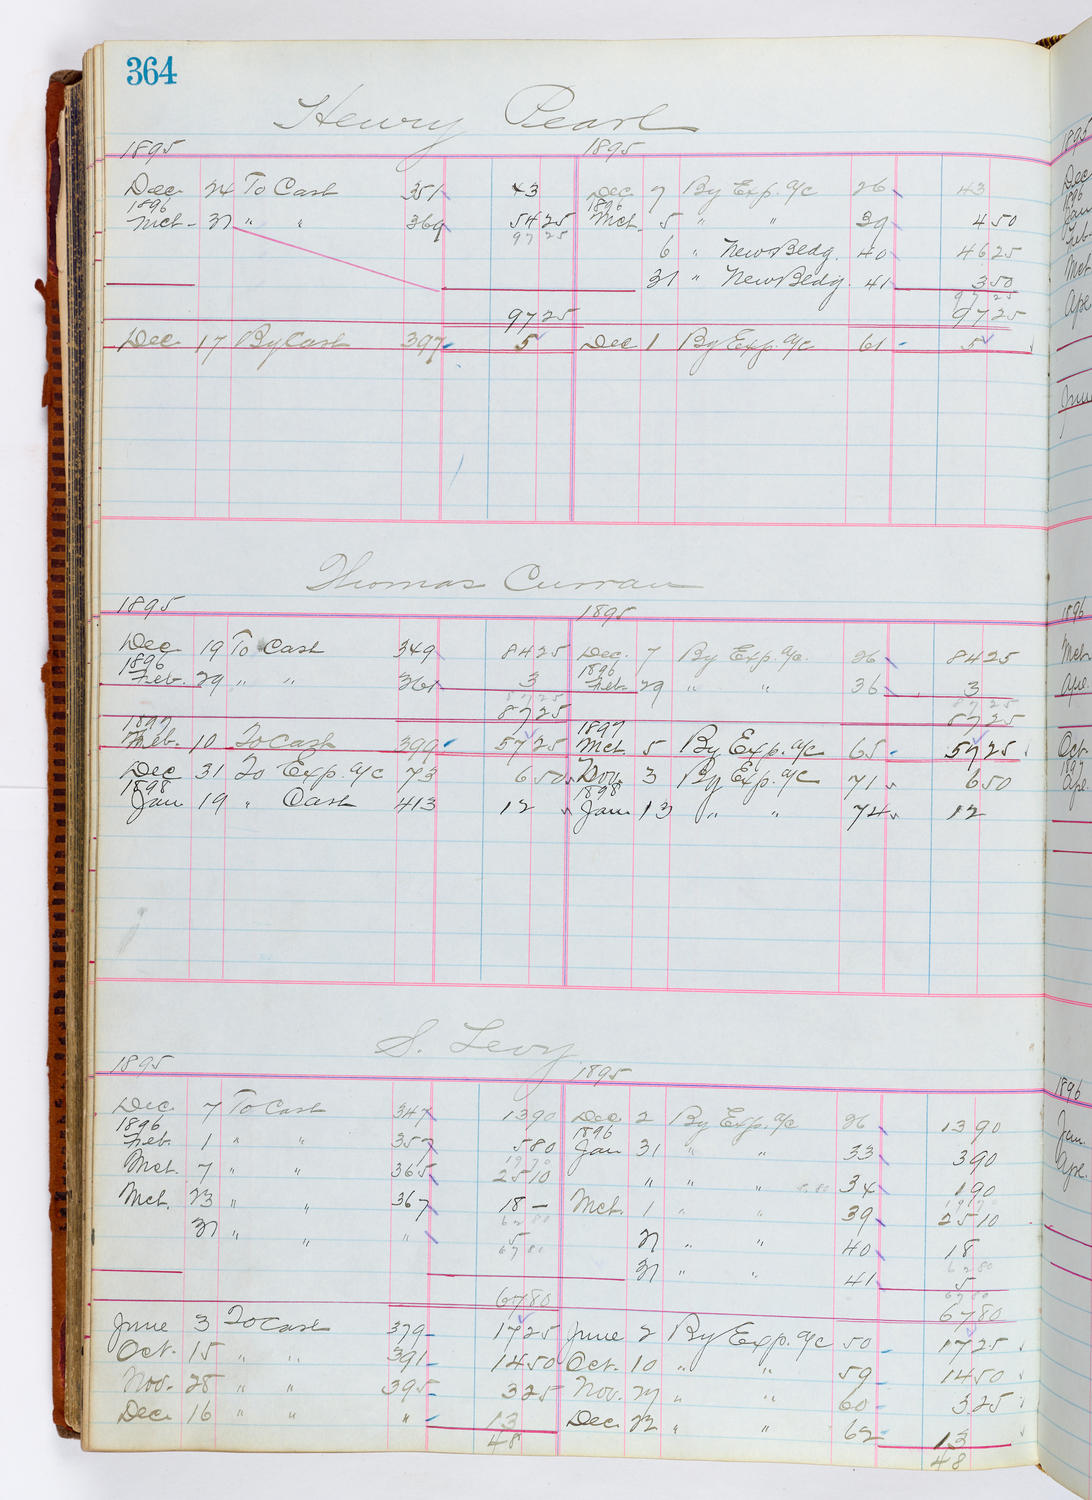 364
Henry Pearl
1895 1895
Dec. 24 To Cash 351 43 Dec. 7 By Exp. a/c 26 43
1896 1896
Mch. 31 " " 369 54 25 Mch. 5 " " 39 4 50
97 25
6 " New Bldg. 40 46 25
31 " New Bldg. 41 3 50
97 25
97 25 97 25
Dec 17 By Cash 397 5 Dec 1 By Exp. a/c 61 5
Thomas Curran
1895 1895
Dec. 19 To Cash 349 84 25 Dec. 7 By Exp. a/c. 26 84 25
1896 1896
Feb. 29 " " 361 3 Feb. 29 " " 36 3
87 25 87 25
87 25 87 25
1897 1897
Feb. 10 To Cash 399 57 25 Mch. 5 By Exp. a/c 65 57 25
Dec 31 To Exp. a/c 73 6 50 Nov. 3 By Exp. a/c 71 6 50
1898 1898
Jan 19 " Cash 413 12 Jan. 13 " " 74 12
S. Levy
1895 1895
Dec. 7 To Cash 347 13 90 Dec 2 By Exp. a/c 26 13 90
1896 1896
Feb. 1 " " 357 5 80 Jan 31 " " 33 3 90
19 70
Mch. 7 " " 365 25 10 " " " 34 1 90
19 70
Mch. 23 " " 367 18 — Mch. 1 " " 39 25 10
62 80
31 " " " 5 21 " " 40 18
67 80 62 80
31 " " 41 5
67 80
67 80 67 80
June 3 To Cash 379 17 25 June 2 By Exp. a/c 50 17 25
Oct. 15 " " 391 14 50 Oct. 10 " " 59 14 50
Nov. 28 " " 395 3 25 Nov. 27 " " 60 3 25
Dec. 16 " " " 13 Dec. 22 " " 62 13
48 48